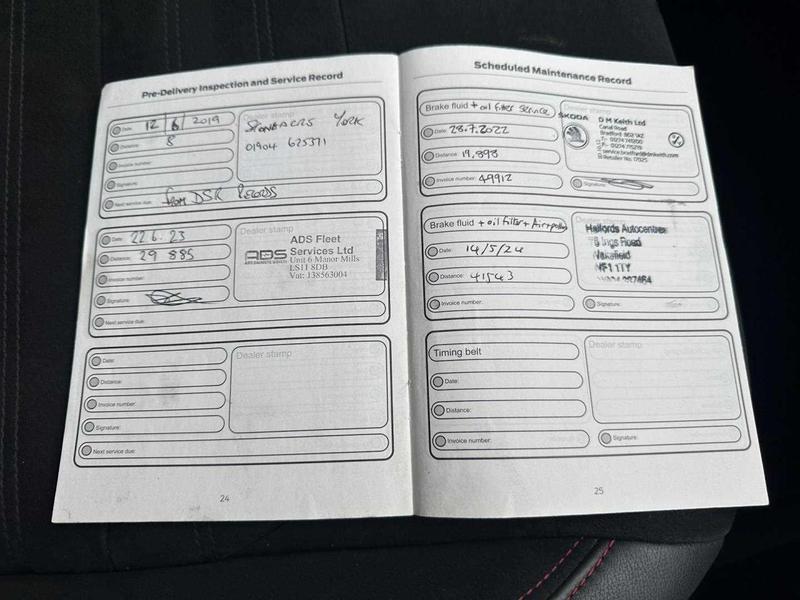 Pre-Delivery Inspection and Service Record
Date: 12 6 2019
Distance: 8
Invoice number:
Signature:
Next service due: from DSR RECORDS
Dealer stamp
YORK
01904 625371
Date: 22 6. 23
Distance: 29 885
Invoice number:
Signature:
Next service due:
Dealer stamp
ADS
ADS Fleet
Services Ltd
Unit 6 Manor Mills
LS11 8DB
Vat: 138563004
Date:
Distance:
Invoice number:
Signature:
Next service due:
Dealer stamp
24
Scheduled Maintenance Record
Brake fluid + oil filter service
Date: 28.7.2022
Distance: 19,898
Invoice number: 49912
Dealer stamp
ŠKODA
D M Keith Ltd
Canal Road
Bradford BD2 1AZ
T:- 01274 741200
F:- 01274 715219
service.bradford@dmkeith.com
Retailer No: 17025
Signature:
Brake fluid + oil filter + Air + pollen
Date: 14/5/24
Distance: 41543
Invoice number:
Dealer stamp
Halfords Autocentres
Ings Road
Wakefield
WF1 1TY
Signature:
Timing belt
Date:
Distance:
Invoice number:
Dealer stamp
Signature:
25